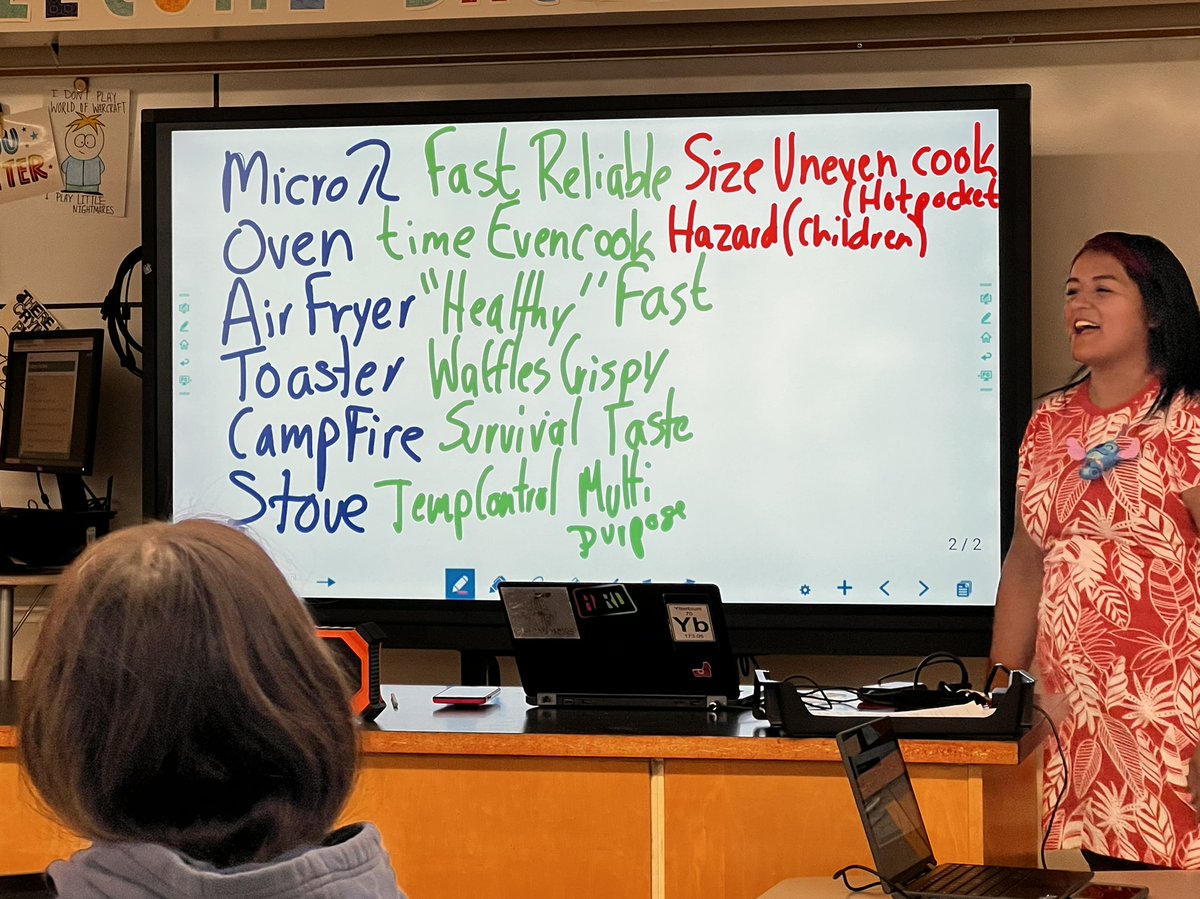 I DON'T PLAY
WORLD OF WARCRAFT
I PLAY LITTLE
NIGHTMARES
Micro λ Fast Reliable Size Uneven cook
(Hotpocket
Oven time Evencook Hazard (Children)
Air Fryer "Healthy" Fast
Toaster Waffles Crispy
CampFire Survival Taste
Stove Temp Control Multi
Purpose
2/2
Ytterbium
70
Yb
173.05